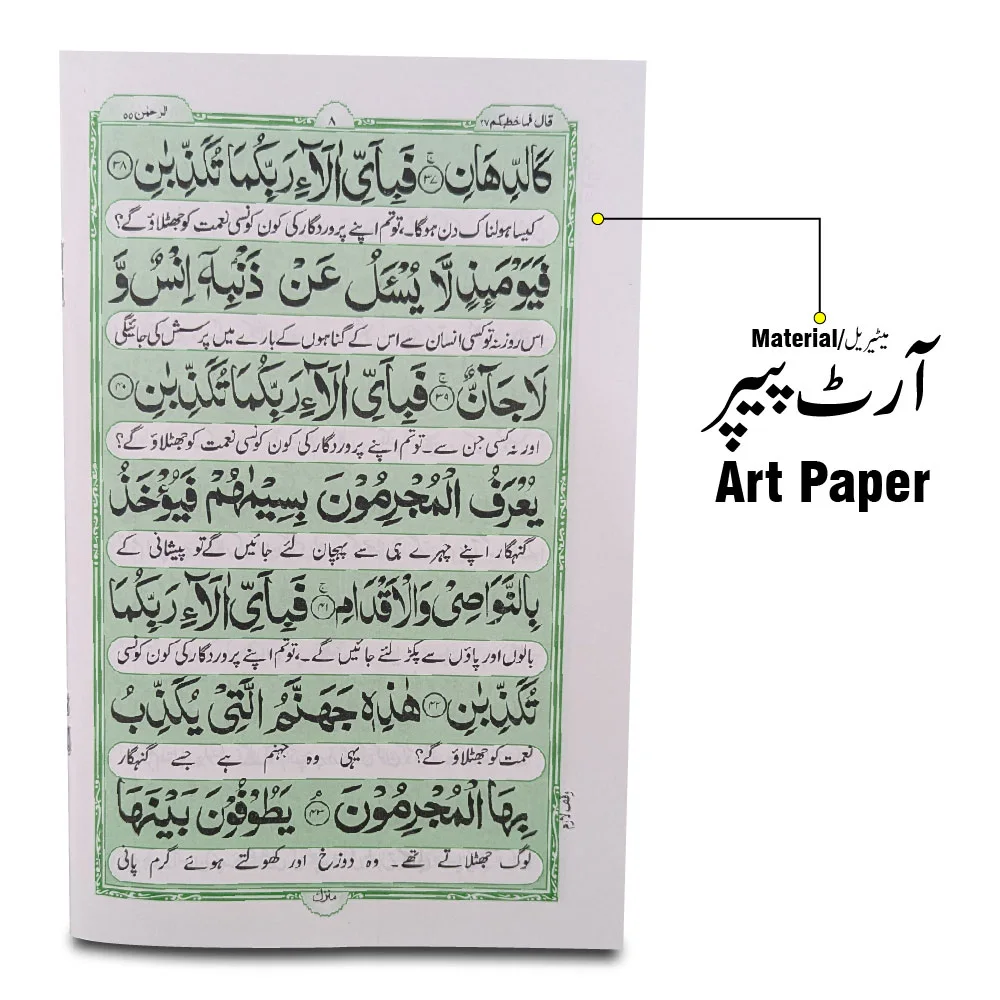 قال فما خطبکم ۲۷
۸
الرحمٰن ۵۵
كَالدِّهَانِ ۚ﴿۳۷﴾ فَبِاَيِّ اٰلَآءِ رَبِّكُمَا تُكَذِّبٰنِ ﴿۳۸﴾
کیسا ہولناک دن ہوگا۔، تو تم اپنے پروردگار کی کون کونسی نعمت کو جھٹلاؤ گے؟
فَيَوْمَئِذٍ لَّا يُسْـَٔلُ عَنْ ذَنْۢبِهٖۤ اِنْسٌ وَّ
اس روز نہ تو کسی انسان سے اس کے گناہوں کے بارے میں پرسش کی جائیگی
لَا جَآنٌّ ۚ﴿۳۹﴾ فَبِاَيِّ اٰلَآءِ رَبِّكُمَا تُكَذِّبٰنِ ﴿۴۰﴾
اور نہ کسی جن سے۔ تو تم اپنے پروردگار کی کون کونسی نعمت کو جھٹلاؤ گے؟
يُعْرَفُ الْمُجْرِمُوْنَ بِسِيْمٰهُمْ فَيُؤْخَذُ
گنہگار اپنے چہرے ہی سے پہچان لئے جائیں گے تو پیشانی کے
بِالنَّوَاصِيْ وَالْاَقْدَامِ ۚ﴿۴۱﴾ فَبِاَيِّ اٰلَآءِ رَبِّكُمَا
بالوں اور پاؤں سے پکڑ لئے جائیں گے۔، تو تم اپنے پروردگار کی کون کونسی
تُكَذِّبٰنِ ﴿۴۲﴾ هٰذِهٖ جَهَنَّمُ الَّتِيْ يُكَذِّبُ
نعمت کو جھٹلاؤ گے؟ یہی وہ جہنم ہے جسے گنہگار
بِهَا الْمُجْرِمُوْنَ ۘ﴿۴۳﴾ يَطُوْفُوْنَ بَيْنَهَا
وقف لازم
لوگ جھٹلاتے تھے۔ وہ دوزخ اور کھولتے ہوئے گرم پانی
Material/میٹیریل
آرٹ پیپر
Art Paper